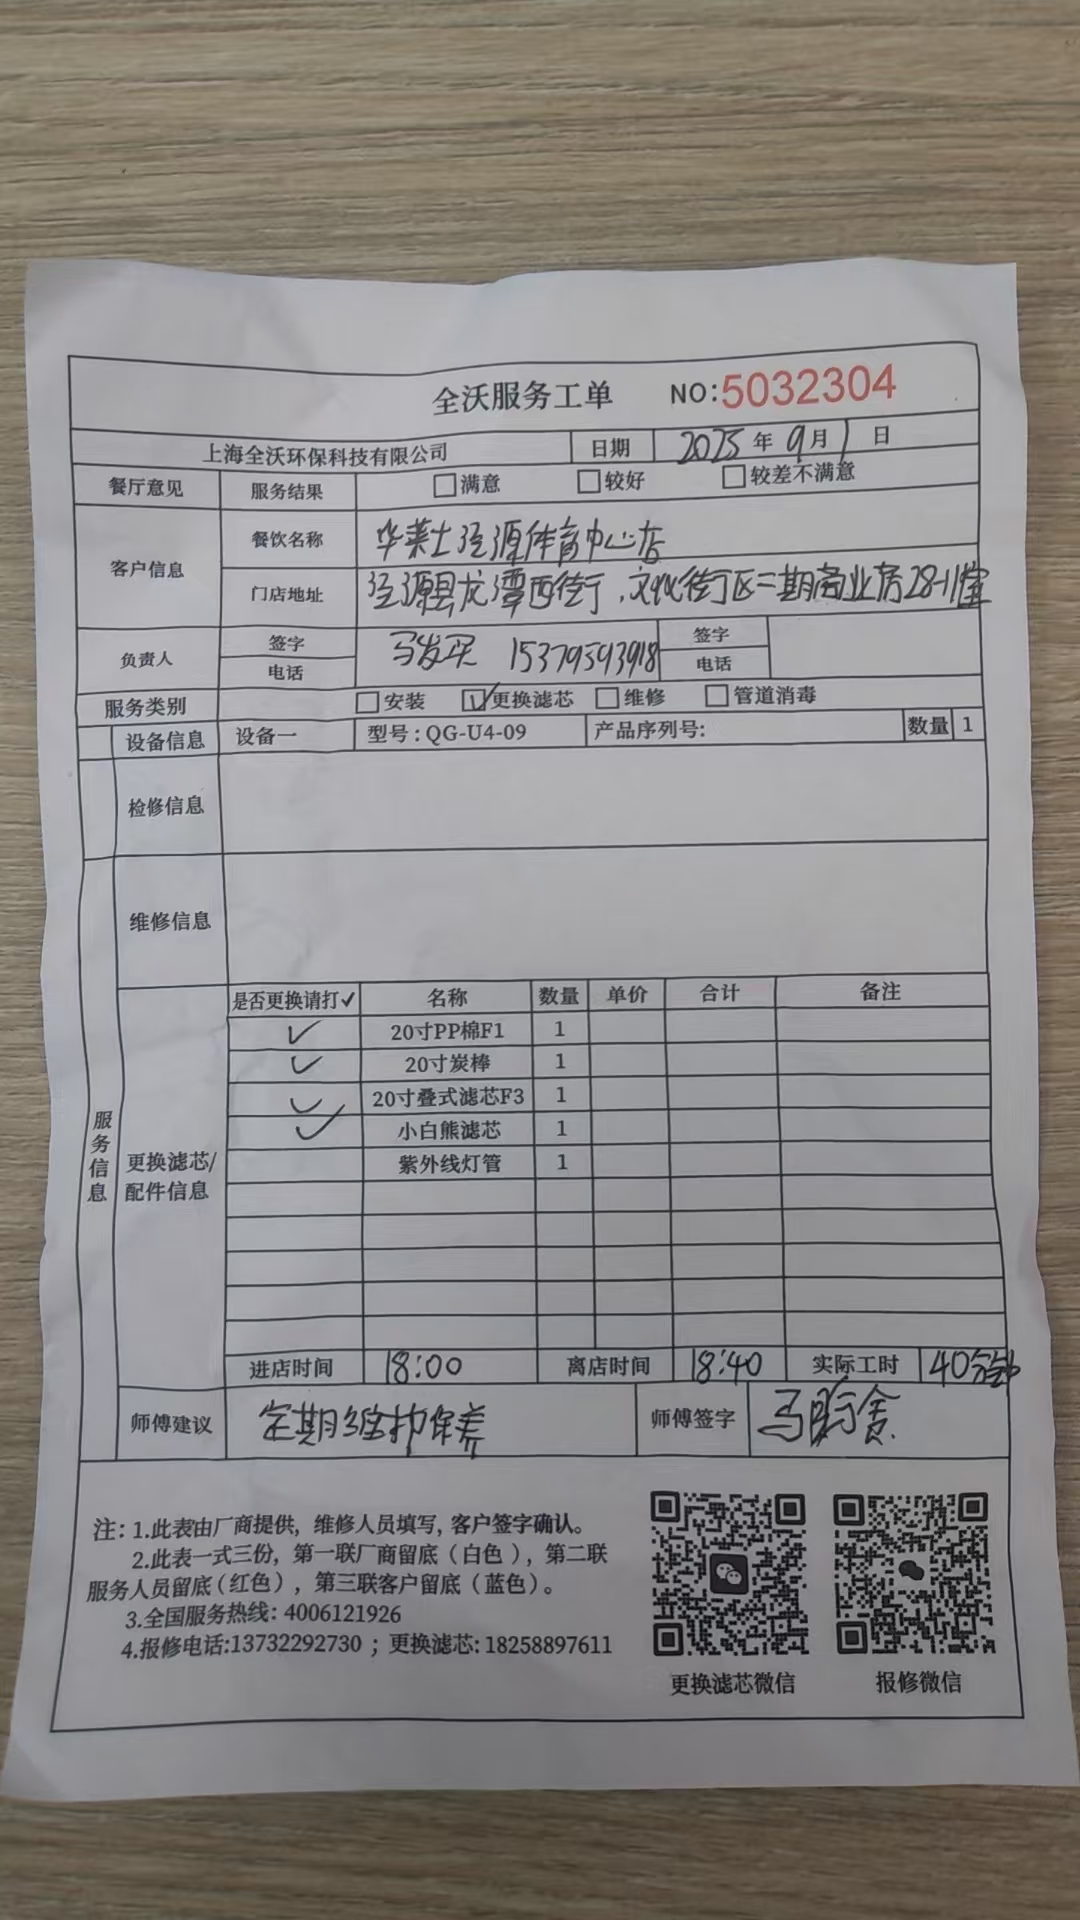 全沃服务工单 NO:5032304
上海全沃环保科技有限公司 日期 2025年9月1日
餐厅意见 服务结果 □满意 □较好 □较差不满意
客户信息 餐饮名称 华莱士泾源体育中心店
门店地址 泾源县龙潭西街,文化街区二期商业房28-11
负责人 签字 电话 马发买 15379593918 签字 电话
服务类别 □安装 ☑更换滤芯 □维修 □管道消毒
设备信息 设备一 型号:QG-U4-09 产品序列号: 数量 1
检修信息
维修信息
服务信息
更换滤芯/配件信息
是否更换请打✓ 名称 数量 单价 合计 备注
✓ 20寸PP棉F1 1
✓ 20寸炭棒 1
✓ 20寸叠式滤芯F3 1
✓ 小白熊滤芯 1
紫外线灯管 1
进店时间 18:00 离店时间 18:40 实际工时 40分钟
师傅建议 定期维护保养 师傅签字 马
注: 1.此表由厂商提供, 维修人员填写, 客户签字确认。
2.此表一式三份, 第一联厂商留底(白色), 第二联
服务人员留底(红色), 第三联客户留底(蓝色)。
3.全国服务热线: 4006121926
4.报修电话:13732292730 ; 更换滤芯: 18258897611
更换滤芯微信 报修微信